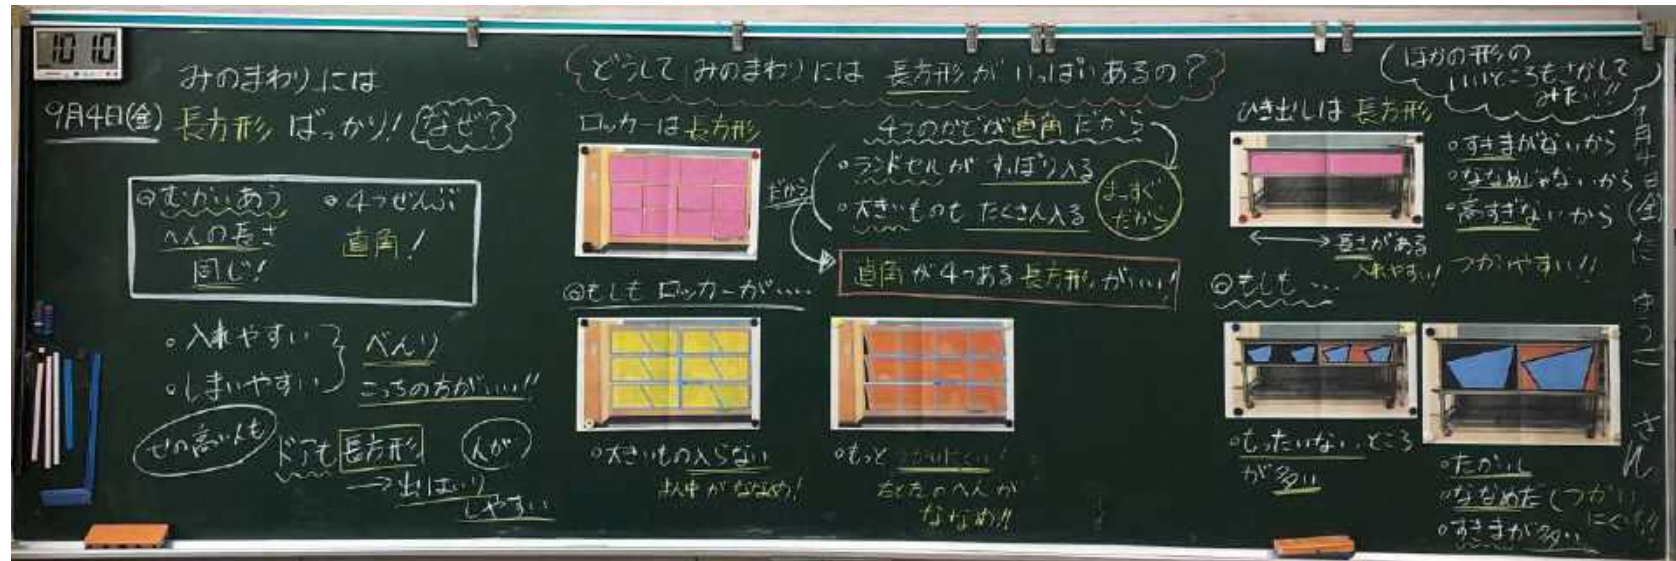 10 10
9月4日(金)
みのまわりには
長方形 ばっかり! なぜ?
◎むかいあう
へんの長さ
同じ!
◦4つぜんぶ
直角!
◦入れやすい
◦しまいやすい
べんり
こっちの方がいい!!
せの高い人も
ドアも 長方形
人が
→出はいり
しやすい
どうして「みのまわり」には 長方形が いっぱいあるの?
ロッカーは 長方形
だから
4つのかどが直角だから
◦ランドセルが すっぽり入る
◦大きいものも たくさん入る
まっすぐ
だから
直角が4つある長方形がいい!
◎もしも ロッカーが…
◦大きいもの入らない
まん中がななめ!
◦もっと つかいにくい!
右と左のへんが
ななめ!!
ほかの形の
いいところもさがして
みたい!!
ひき出しは 長方形
◦すきまがないから
◦ななめじゃないから
◦高すぎないから
つかいやすい!!
長さがある
入れやすい!
◎もしも…
◦もったいないところ
が多い
◦たかいし
◦ななめだし
◦すきまが多い
つかい
にくい!!
9月4日(金)
さん